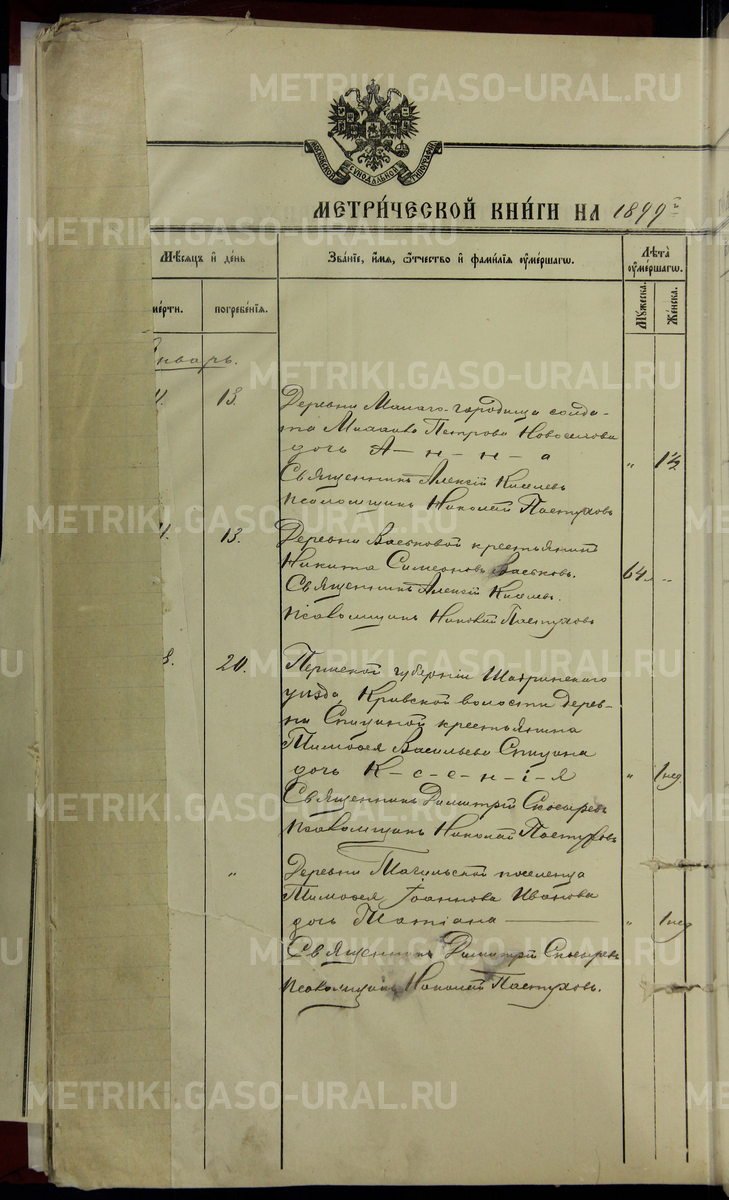 METRIKI.GASO-URAL.RU
МОСКОВСКОЙ СѴНОДАЛЬНОЙ ТИПОГРАФІИ
МЕТРИ́ЧЕСКОЙ КНИ́ГИ НА 1899 г.
Мѣсяцъ и҆ де́нь
Зва́нїе, и҆́мя, ѻ҆́тчество и҆ фами́лїѧ ᲂу҆ме́ршагѡ.
Лѣ́та ᲂу҆ме́ршагѡ.
ме́рти.
погребе́нїѧ.
Мꙋжеска.
Же́нска.
Январь.
13.
Деревни Малаго-городища солда-
та Михаила Петрова Новоселова
дочь А-н-н-а
Священникъ Алексій Киселевъ
Псаломщикъ Николай Пастуховъ
13.
Деревни Васьковой крестьянинъ
Никита Симеоновъ Васьковъ.
64
Священникъ Алексій Киселевъ.
Псаломщикъ Николай Пастуховъ
8.
20.
Пермской губерніи Шадринскаго
уѣзда, Кривской волости дерев-
ни Спицыной крестьянина
Тимофея Васильева Спицина
дочь К-с-е-н-і-я
" 1 нед
Священникъ Димитрій Скосыревъ
Псаломщикъ Николай Пастуховъ
"
Деревни Тагильской поселенца
Тимофея Іоаннова Иванова
дочь Татіана
" 1 нед
Священникъ Димитрій Скосыревъ
Псаломщикъ Николай Пастуховъ.